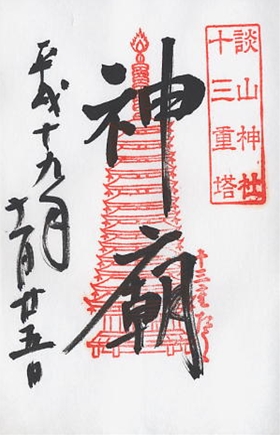 談山神社
十三重塔
神廟
平成十九年
十一月廿五日